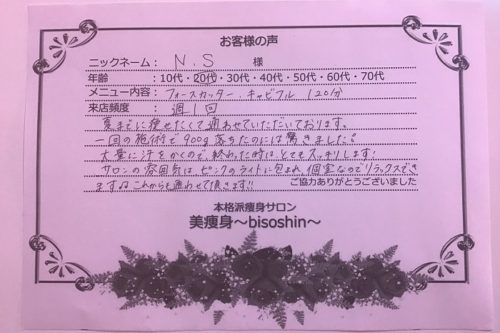 お客様の声
ニックネーム： N.S 様
年齢 ：10代・20代・30代・40代・50代・60代・70代
メニュー内容：フォースカッター・キャビフル 120分
来店頻度 ： 週1回
夏までに痩せたくて通わせていただいております。
一回の施術で900g落ちたのには驚きました！
大量に汗をかくので、終わった時はとてもスッキリします！
サロンの雰囲気は、ピンクのライトに包まれ、個室なのでリラックスでき
ますね これからも通わせて頂きます!!
ご協力ありがとうございました
本格派痩身サロン
美痩身〜bisoshin〜